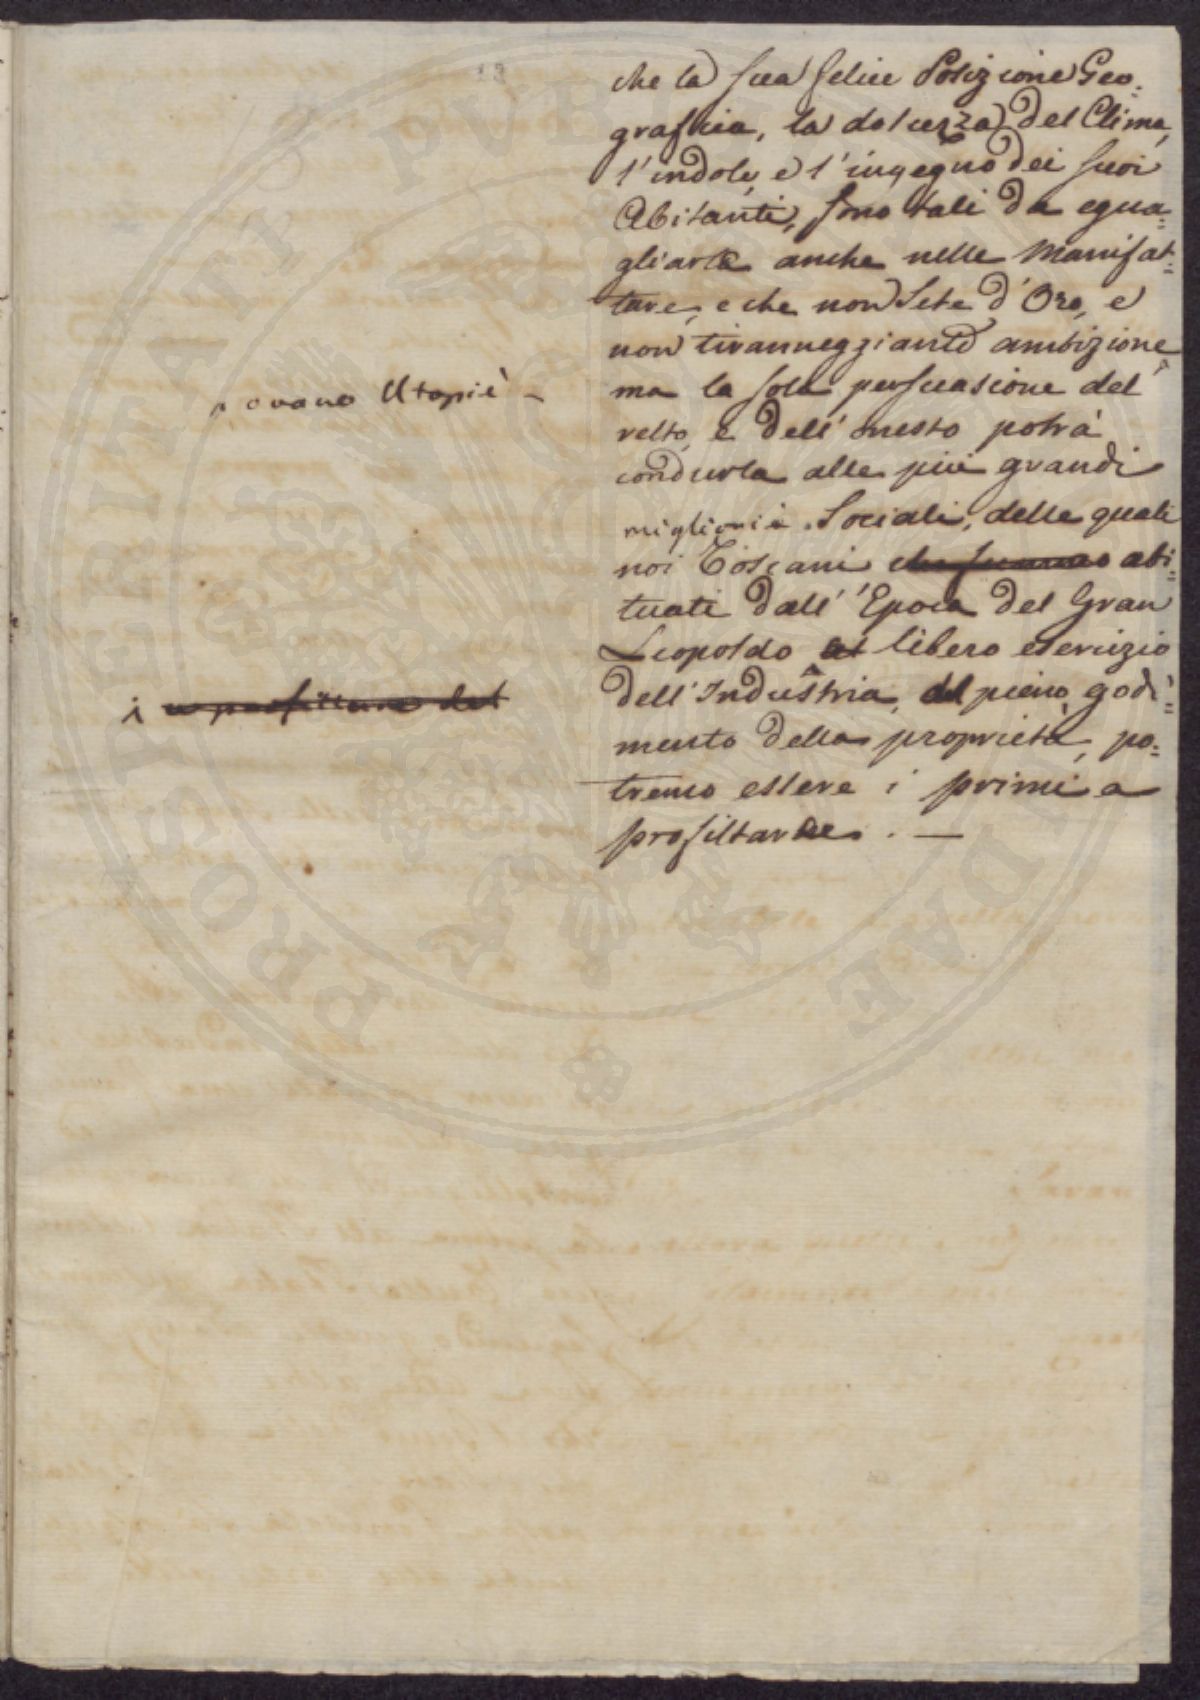 che la sua felice Posizione Geo=
grafica, la dolcezza del Clima,
l'indole, e l'ingegno dei suoi
Abitanti, sono tali da egua=
gliarla anche nelle Manifat=
ture, e che non Sete d'Oro, e
non tiranneggiante ambizione,
ma la sola persuasione del
retto, e dell'onesto potrà
condurla alle più grandi
migliorie Sociali, delle quali
noi Toscani che fummo abi=
tuati dall'Epoca del Gran
Leopoldo al libero esercizio
dell'Industria, del pieno godi=
mento della proprietà, po=
tremo essere i primi a
profittarne. —
vano Utopiè -
i a profittare del
PROSPERITATI PVBLICAE